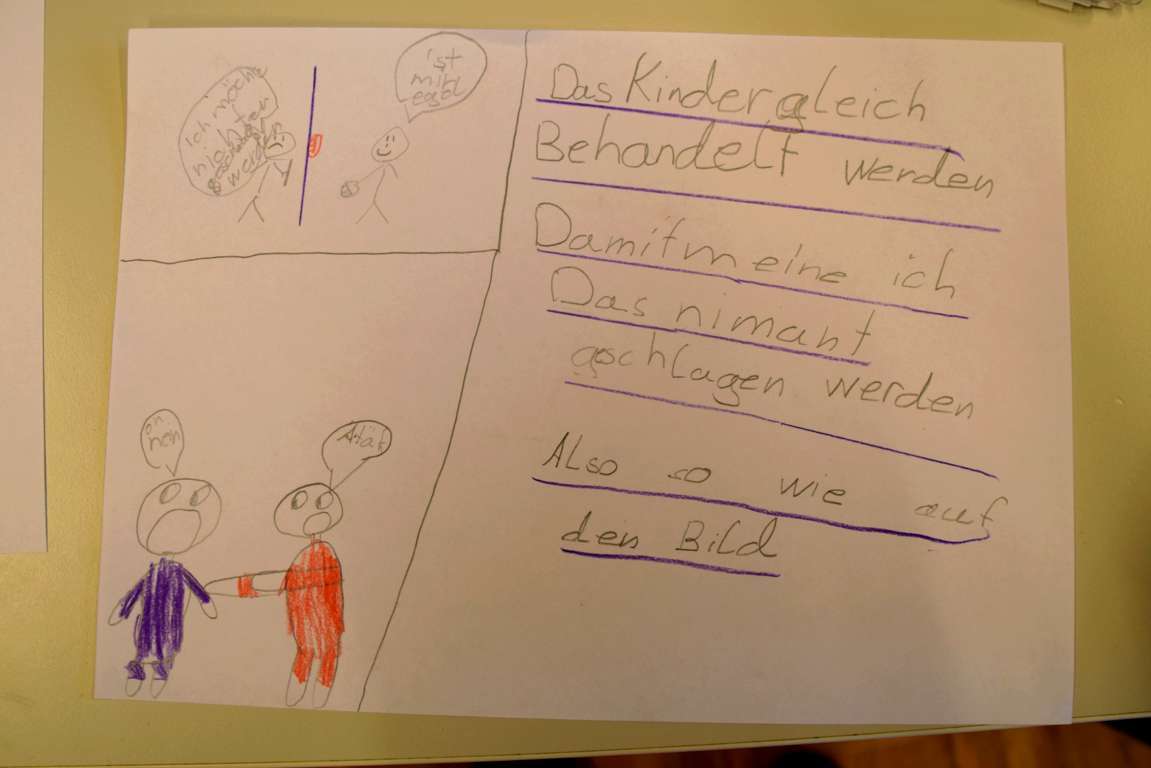 Ich möchte
nicht
ist
mir
egal
Das Kinder gleich
Behandelt werden
Damit meine ich
Das nimant
geschlagen werden
Also so wie auf
den Bild
oh
nein